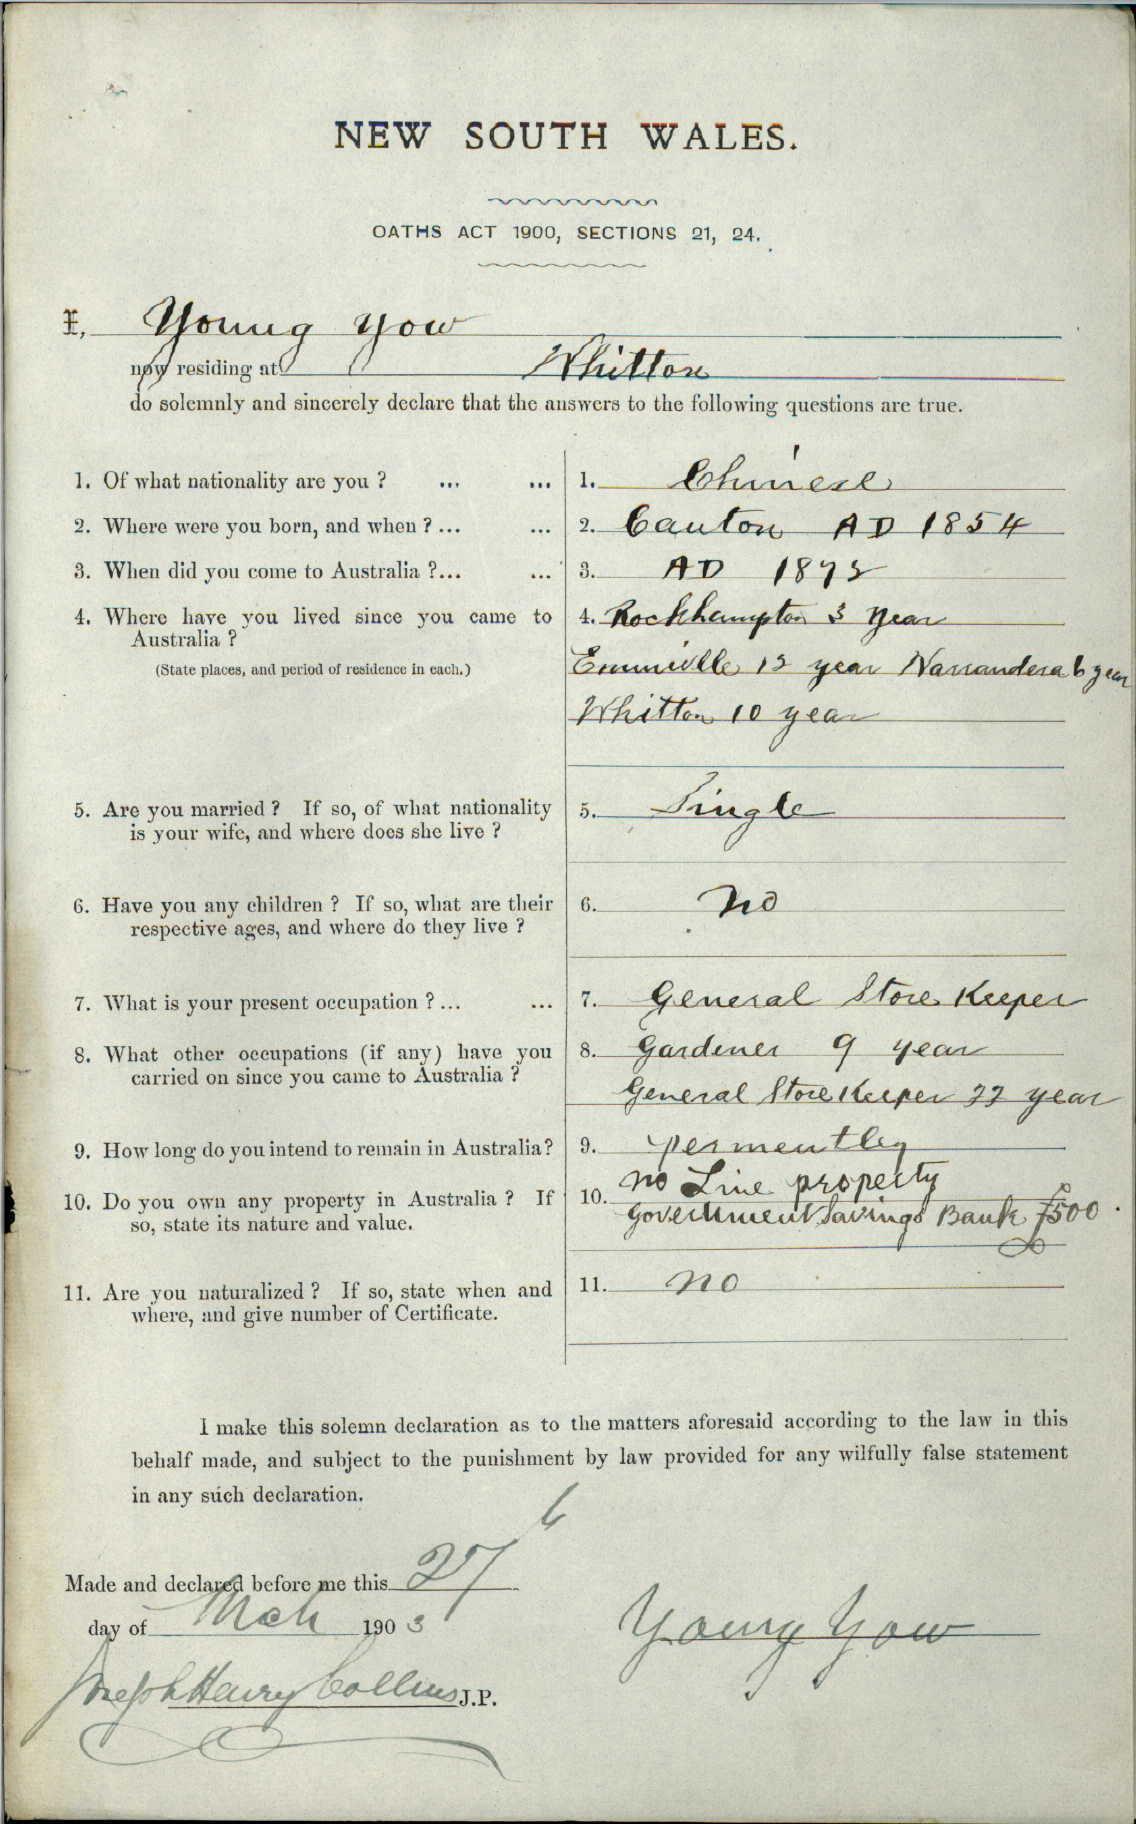 NEW SOUTH WALES.
OATHS ACT 1900, SECTIONS 21, 24.
I, Young Yow
now residing at Whitton
do solemnly and sincerely declare that the answers to the following questions are true.
1. Of what nationality are you ? ... ... 1. Chinese
2. Where were you born, and when ? ... ... 2. Canton AD 1854
3. When did you come to Australia ?... ... 3. AD 1872
4. Where have you lived since you came to 4. Rockhampton 3 year
Australia ?
(State places, and period of residence in each.) Emmiville 12 year Narrandera 6 year
Whitton 10 year
5. Are you married ? If so, of what nationality 5. Single
is your wife, and where does she live ?
6. Have you any children ? If so, what are their 6. no
respective ages, and where do they live ?
7. What is your present occupation ? ... ... 7. General Store Keeper
8. What other occupations (if any) have you 8. Gardener 9 year
carried on since you came to Australia ? General Store Keeper 22 year
9. How long do you intend to remain in Australia? 9. permently
10. Do you own any property in Australia ? If 10. no Line property
so, state its nature and value. Government Savings Bank £500
11. Are you naturalized ? If so, state when and 11. no
where, and give number of Certificate.
I make this solemn declaration as to the matters aforesaid according to the law in this
behalf made, and subject to the punishment by law provided for any wilfully false statement
in any such declaration.
Made and declared before me this 27th
day of Mch 1903 Young Yow
Joseph Henry Collins J.P.